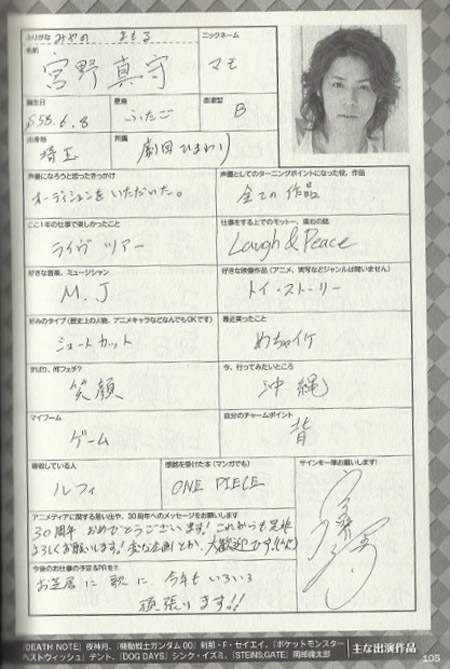 ふりがな みやの まもる
ニックネーム
名前 宮野 真守
マモ
誕生日 星座 血液型
S58.6.8 ふたご B
出身地 所属
埼玉 劇団ひまわり
声優になろうと思ったきっかけ
オーディションをいただいた。
声優としてのターニングポイントになった役、作品
全ての作品
ここ1年の仕事で楽しかったこと
ライヴ ツアー
仕事をする上でのモットー、座右の銘
Laugh & Peace
好きな音楽、ミュージシャン
M.J
好きな映像作品(アニメ、実写などジャンルは問いません)
トイ・ストーリー
好みのタイプ(歴史上の人物、アニメキャラなどなんでもOKです)
ショートカット
最近笑ったこと
めちゃイケ
ずばり、何フェチ?
笑顔
今、行ってみたいところ
沖縄
マイブーム
ゲーム
自分のチャームポイント
背
尊敬している人
ルフィ
感銘を受けた本(マンガでも)
ONE PIECE
サインを一筆お願いします!
アニメディアに関する思い出や、30周年へのメッセージをお願いします
30周年 おめでとうございます! これからも是非
よろしくお願いします! 変な企画とか、大歓迎です!!(笑)
今後のお仕事の予定&PRを!!
お芝居に 歌に 今年もいろいろ
頑張ります!!
『DEATH NOTE』夜神月、『機動戦士ガンダム00』刹那・F・セイエイ、『ポケットモンスター
ベストウィッシュ』デント、『DOG DAYS』シンク・イズミ、『STEINS;GATE』岡部倫太郎
主な出演作品
105